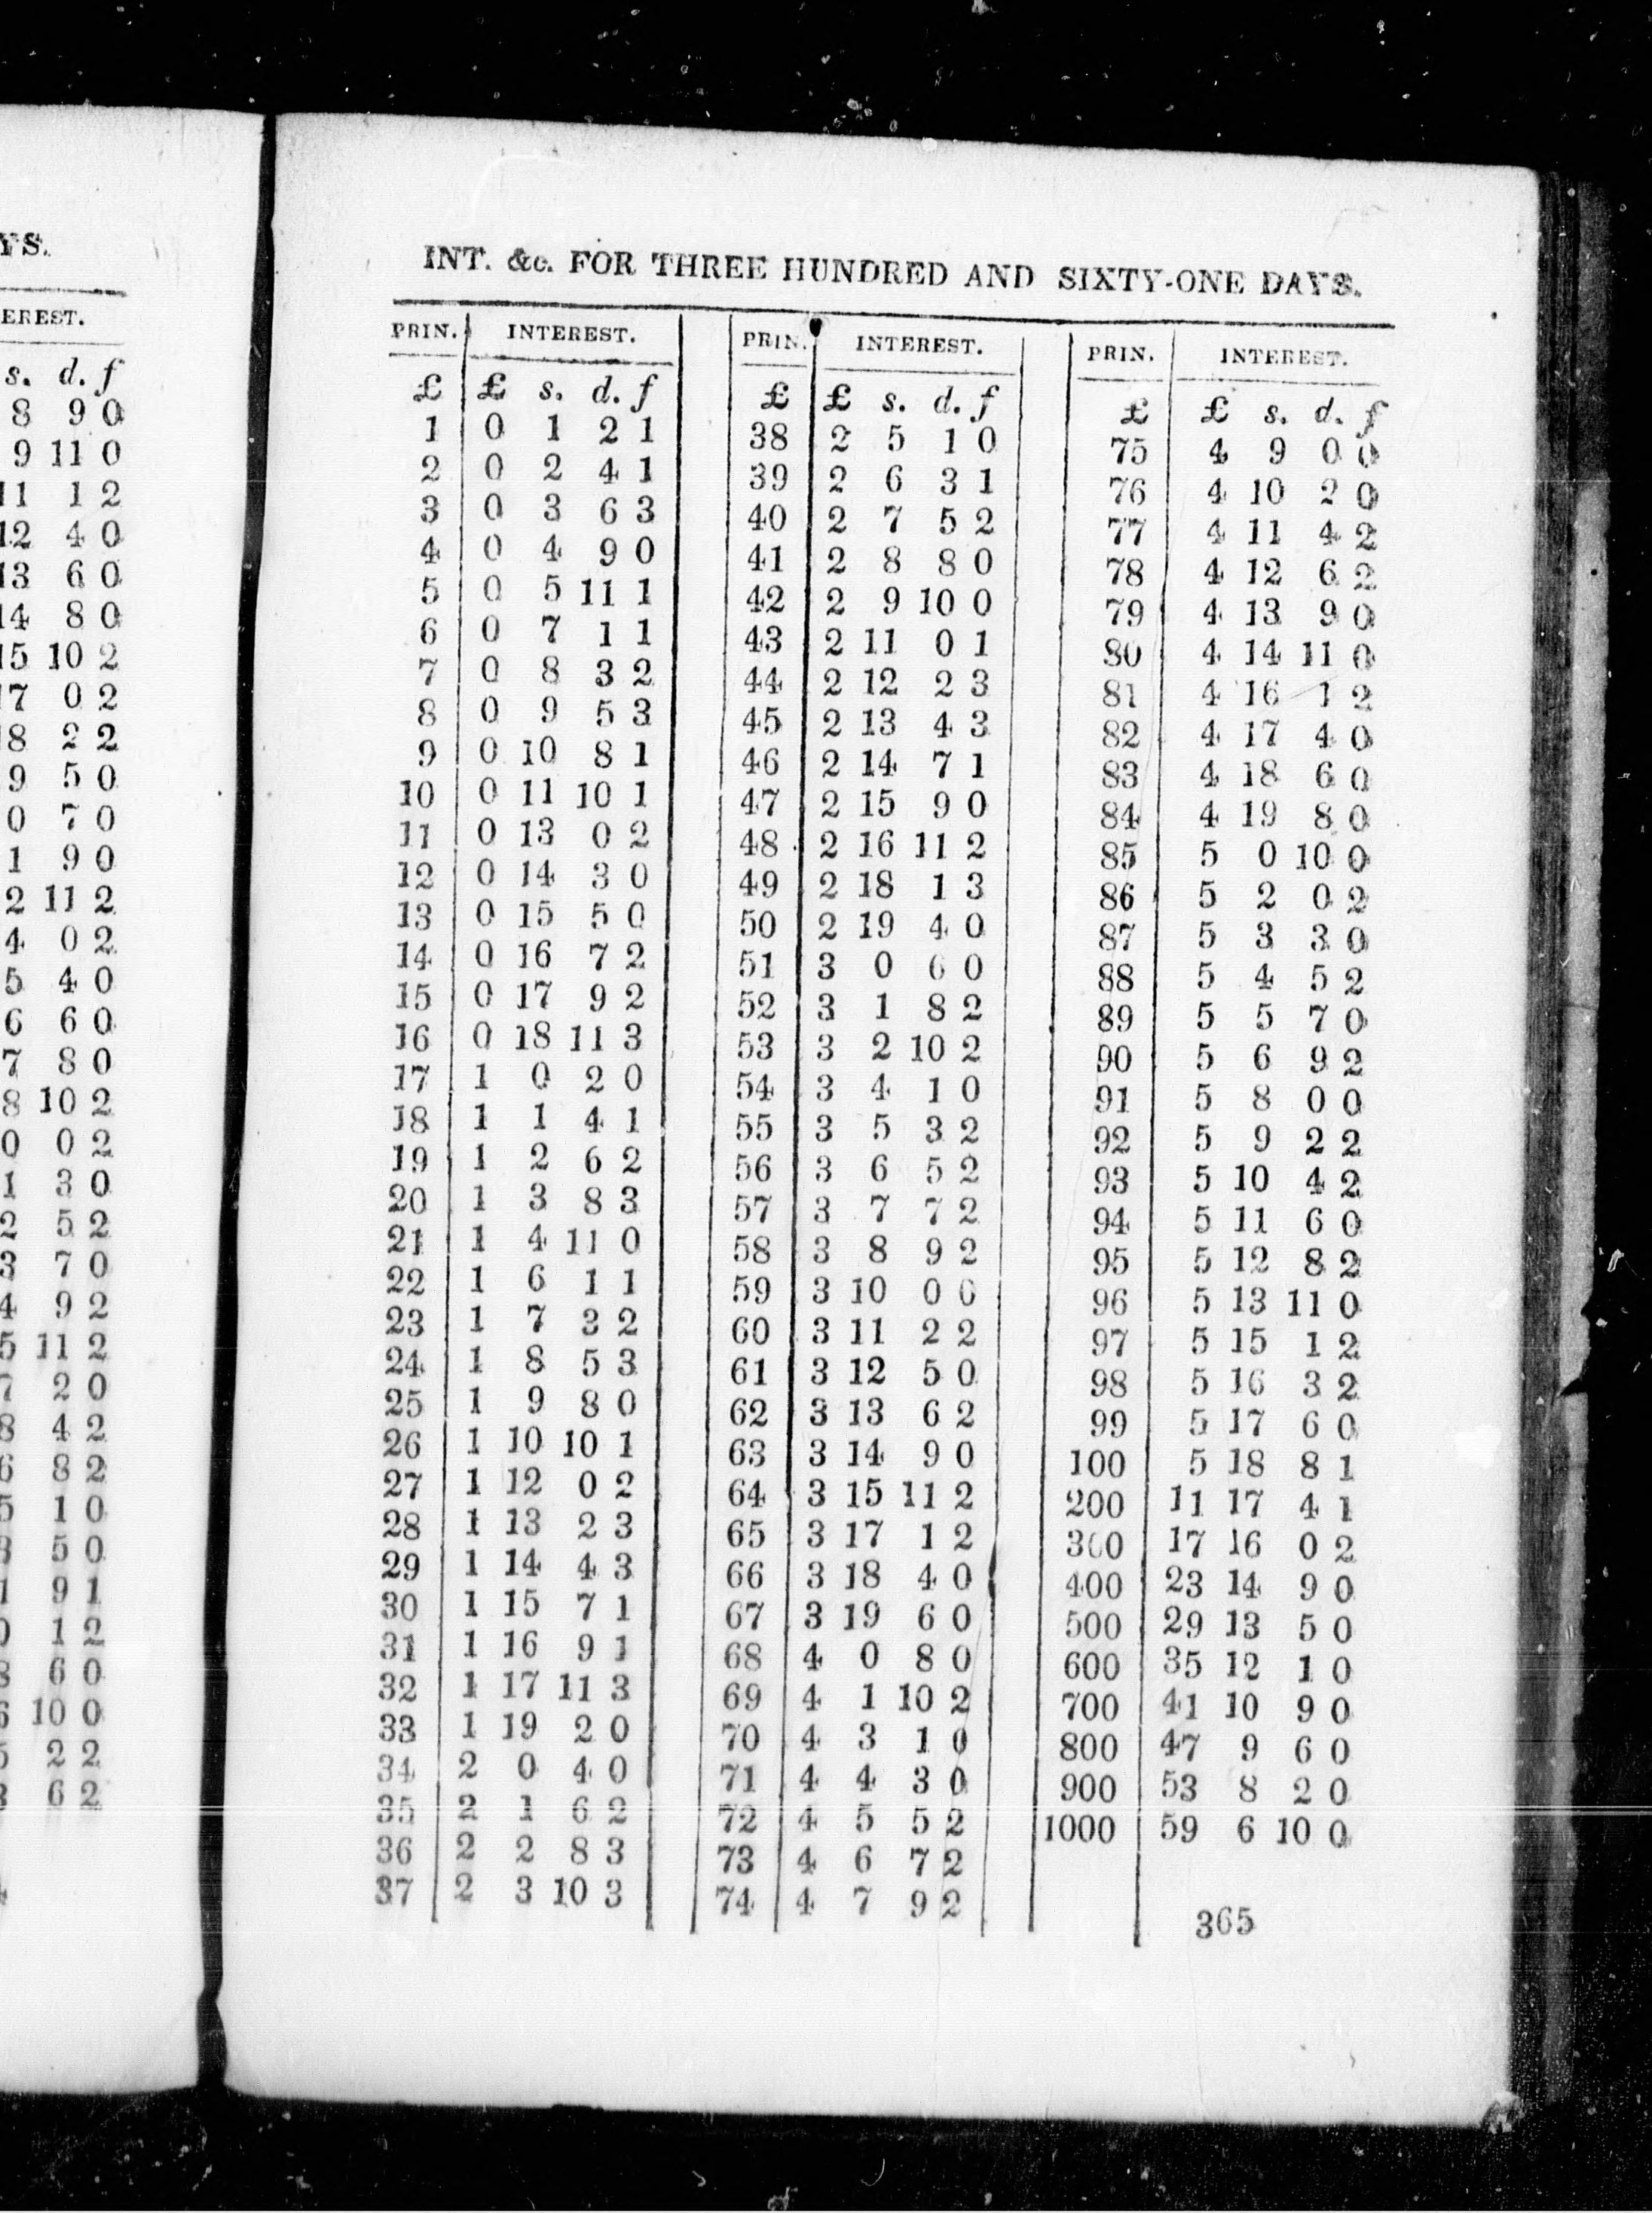 YS.
EREST.
s. d. f
8 9 0
9 11 0
11 1 2
12 4 0
13 6 0
14 8 0
15 10 2
17 0 2
18 2 2
9 5 0
0 7 0
1 9 0
2 11 2
4 0 2
5 4 0
6 6 0
7 8 0
8 10 2
0 0 2
1 3 0
2 5 2
3 7 0
4 9 2
5 11 2
7 2 0
8 4 2
6 8 2
5 1 0
3 5 0
1 9 1
0 1 2
8 6 0
6 10 0
5 2 2
3 6 2
INT. &c. FOR THREE HUNDRED AND SIXTY-ONE DAYS.
PRIN. INTEREST.
£ £ s. d. f
1 0 1 2 1
2 0 2 4 1
3 0 3 6 3
4 0 4 9 0
5 0 5 11 1
6 0 7 1 1
7 0 8 3 2
8 0 9 5 3
9 0 10 8 1
10 0 11 10 1
11 0 13 0 2
12 0 14 3 0
13 0 15 5 0
14 0 16 7 2
15 0 17 9 2
16 0 18 11 3
17 1 0 2 0
18 1 1 4 1
19 1 2 6 2
20 1 3 8 3
21 1 4 11 0
22 1 6 1 1
23 1 7 3 2
24 1 8 5 3
25 1 9 8 0
26 1 10 10 1
27 1 12 0 2
28 1 13 2 3
29 1 14 4 3
30 1 15 7 1
31 1 16 9 1
32 1 17 11 3
33 1 19 2 0
34 2 0 4 0
35 2 1 6 2
36 2 2 8 3
37 2 3 10 3
PRIN. INTEREST.
£ £ s. d. f
38 2 5 1 0
39 2 6 3 1
40 2 7 5 2
41 2 8 8 0
42 2 9 10 0
43 2 11 0 1
44 2 12 2 3
45 2 13 4 3
46 2 14 7 1
47 2 15 9 0
48 2 16 11 2
49 2 18 1 3
50 2 19 4 0
51 3 0 6 0
52 3 1 8 2
53 3 2 10 2
54 3 4 1 0
55 3 5 3 2
56 3 6 5 2
57 3 7 7 2
58 3 8 9 2
59 3 10 0 0
60 3 11 2 2
61 3 12 5 0
62 3 13 6 2
63 3 14 9 0
64 3 15 11 2
65 3 17 1 2
66 3 18 4 0
67 3 19 6 0
68 4 0 8 0
69 4 1 10 2
70 4 3 1 0
71 4 4 3 0
72 4 5 5 2
73 4 6 7 2
74 4 7 9 2
PRIN. INTEREST.
£ £ s. d. f
75 4 9 0 0
76 4 10 2 0
77 4 11 4 2
78 4 12 6 2
79 4 13 9 0
80 4 14 11 0
81 4 16 1 2
82 4 17 4 0
83 4 18 6 0
84 4 19 8 0
85 5 0 10 0
86 5 2 0 2
87 5 3 3 0
88 5 4 5 2
89 5 5 7 0
90 5 6 9 2
91 5 8 0 0
92 5 9 2 2
93 5 10 4 2
94 5 11 6 0
95 5 12 8 2
96 5 13 11 0
97 5 15 1 2
98 5 16 3 2
99 5 17 6 0
100 5 18 8 1
200 11 17 4 1
300 17 16 0 2
400 23 14 9 0
500 29 13 5 0
600 35 12 1 0
700 41 10 9 0
800 47 9 6 0
900 53 8 2 0
1000 59 6 10 0
365